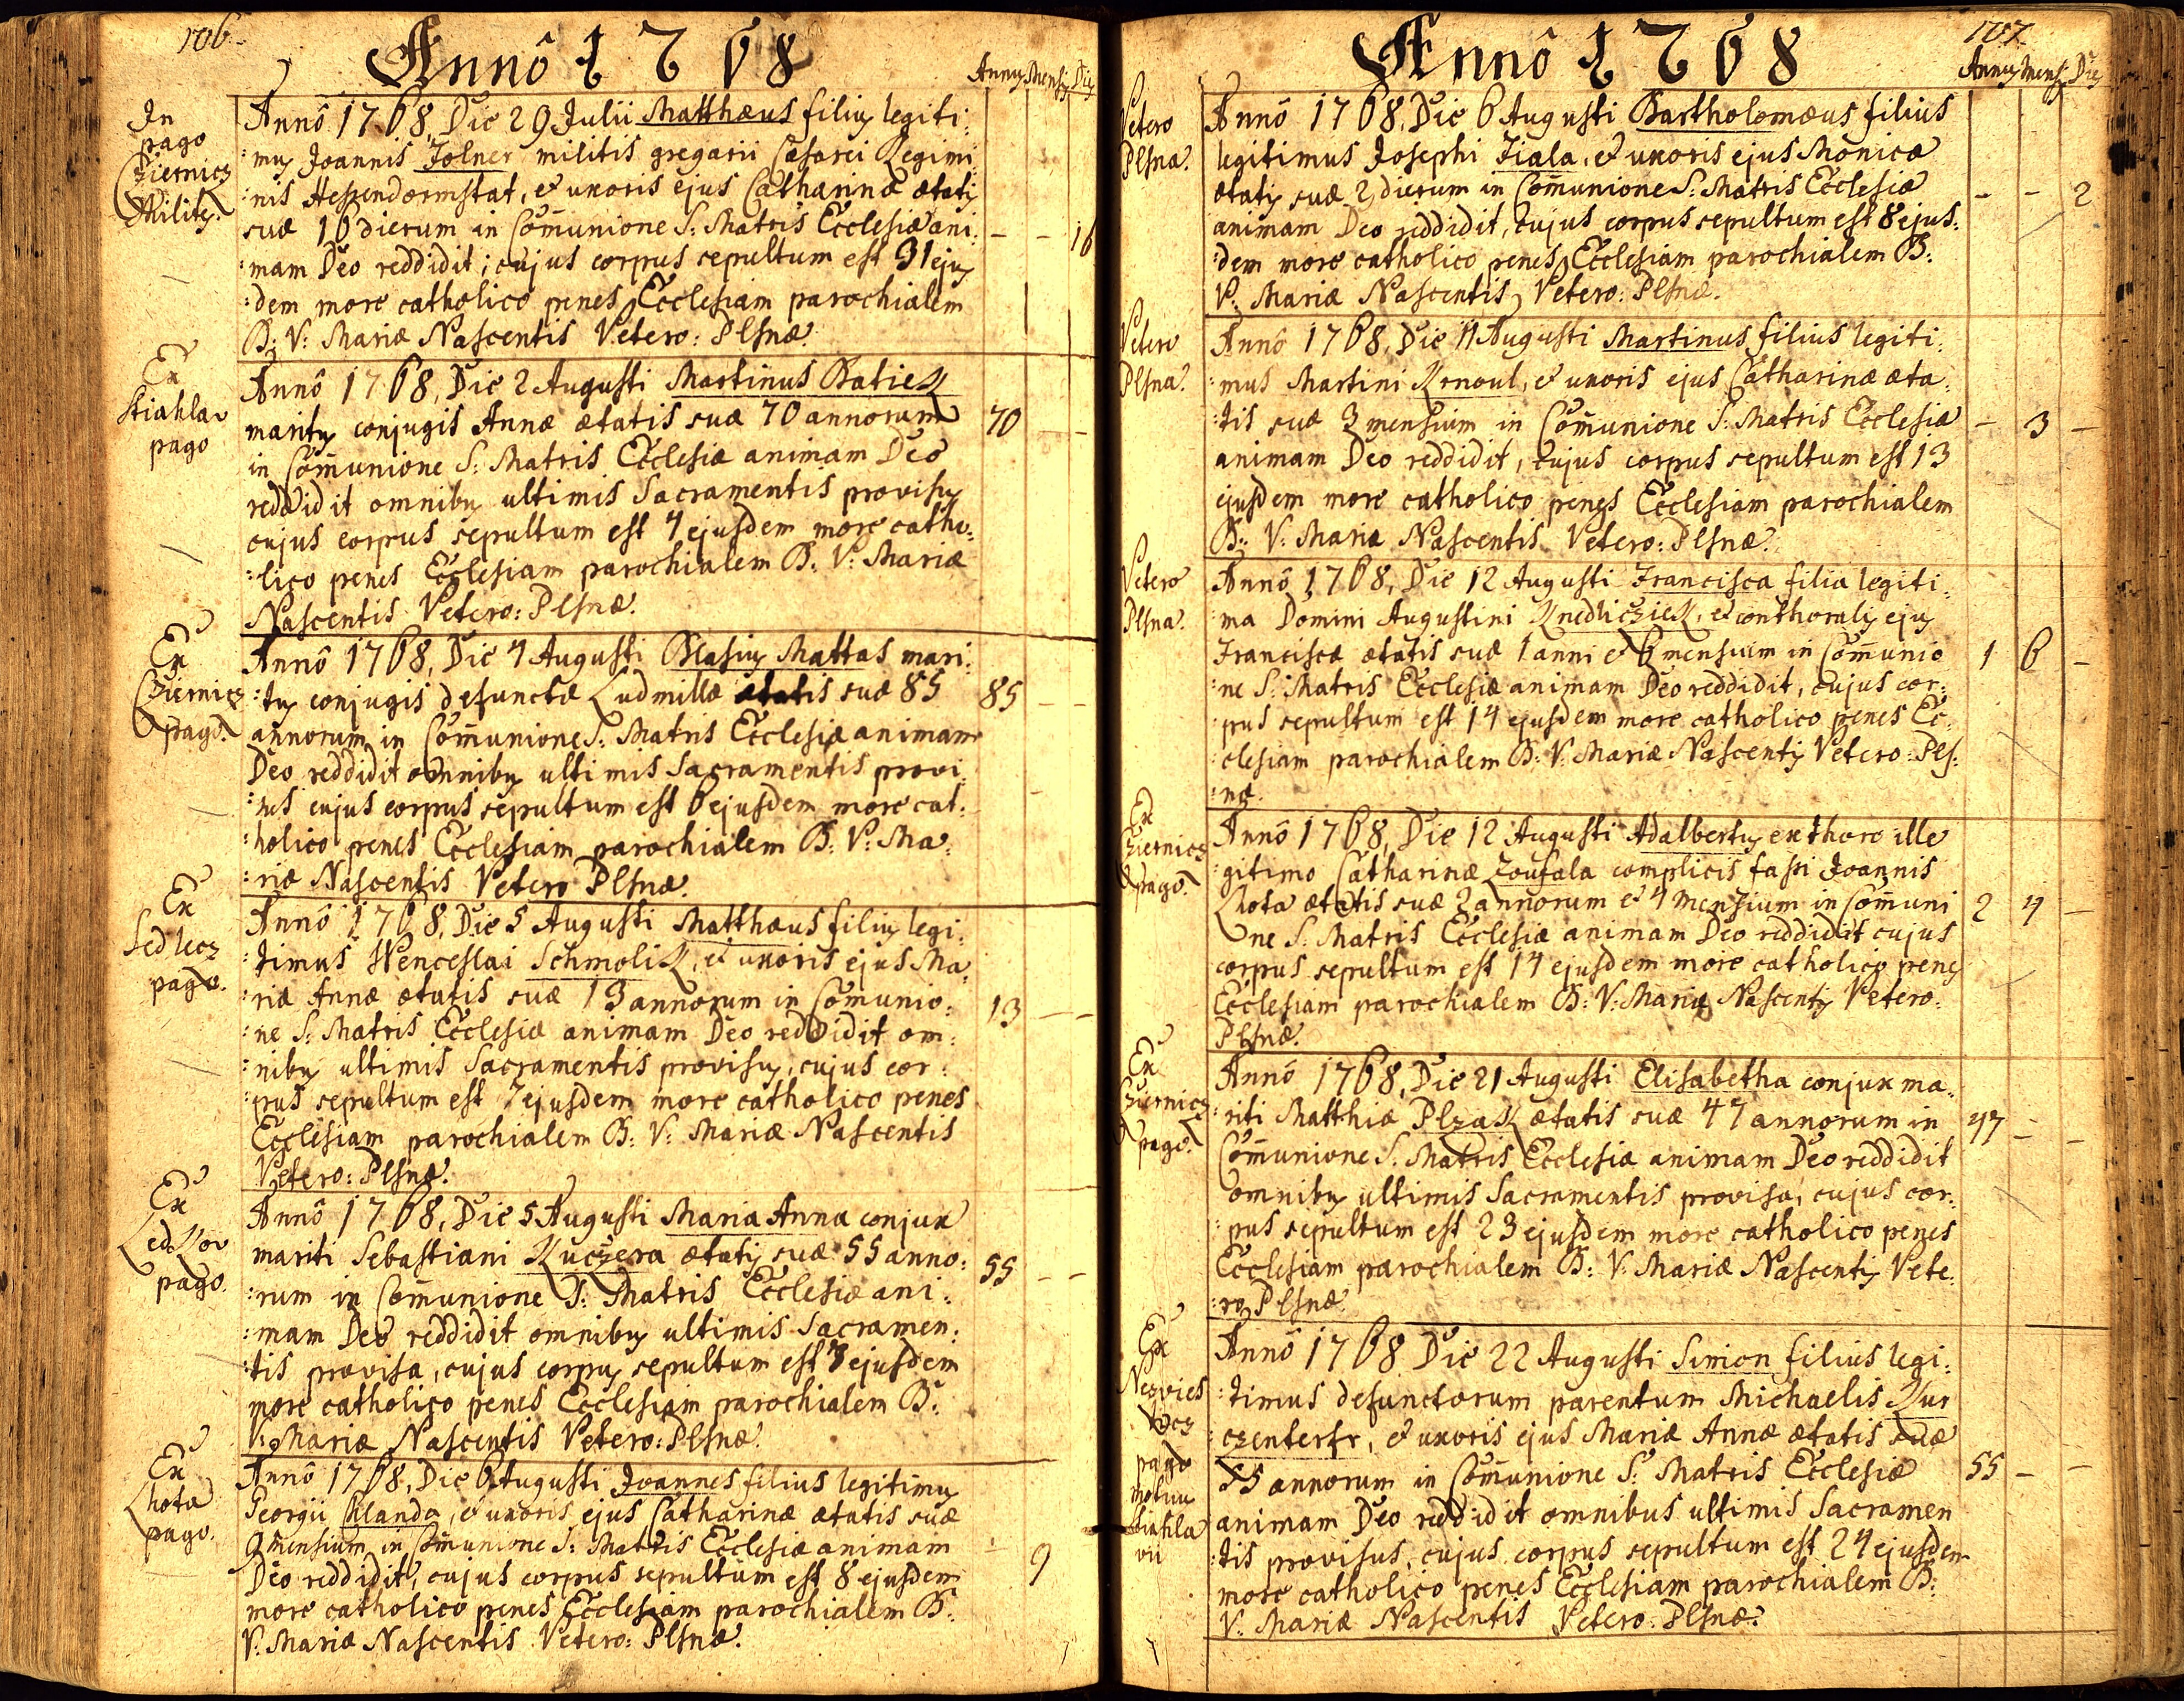 106.
Annô 1768
Annus Mensis Dies
In
pago
Cziernicz
Militis.
Annô 1768, Die 29 Julii Matthæus filius legiti:
:mus Joannis Tolner militis gregarii Cæsarei Regimi
:nis Hessendormstat, et uxoris ejus Catharinæ ætatis
suæ 16 dierum in Com̄unione S: Matris Ecclesiæ ani:
- - 16
:mam Deo reddidit; cujus corpus sepultum est 31 ejus
:dem more catholico penes Ecclesiam parochialem
B: V: Mariæ Nascentis Vetero: Plsnæ.
Ex
Stiahlav
pago
Annô 1768, Die 2 Augusti Martinus Batiek
maritus conjugis Annæ ætatis suæ 70 annorum
70 - -
in Com̄unione S: Matris Ecclesiæ animam Deo
reddidit omnibus ultimis Sacramentis provisus
cujus corpus sepultum est 4 ejusdem more catho:
:lico penes Ecclesiam parochialem B: V: Mariæ
Nascentis Vetero: Plsnæ.
Ex
Cziernicz
pago.
Annô 1768, Die 4 Augusti Blasius Mattas mari:
:tus conjugis defunctæ Ludmillæ ætatis suæ 85
85 - -
annorum in Com̄unione S: Matris Ecclesiæ animam
Deo reddidit omnibus ultimis Sacramentis provi
:sus cujus corpus sepultum est 6 ejusdem more cat:
:holico penes Ecclesiam parochialem B: V: Ma:
:riæ Nascentis Vetero Plsnæ.
Ex
Sedlecz
pago.
Annô 1768, Die 5 Augusti Matthæus filius legi:
:timus Wenceslai Schmolik, et uxoris ejus Ma:
:riæ Annæ ætatis suæ 13 annorum in Com̄unio:
13 - -
:ne S: Matris Ecclesiæ animam Deo reddidit om:
:nibus ultimis Sacramentis provisus, cujus cor:
:pus sepultum est 7 ejusdem more catholico penes
Ecclesiam parochialem B: V: Mariæ Nascentis
Vetero: Plsnæ.
Ex
Ledkov
pago.
Annô 1768, Die 5 Augusti Maria Anna conjux
mariti Sebastiani Kuczera ætatis suæ 55 anno:
55 - -
:rum in Com̄unione S: Matris Ecclesiæ ani:
:mam Deo reddidit omnibus ultimis Sacramen:
:tis provisa, cujus corpus sepultum est 7 ejusdem
more catholico penes Ecclesiam parochialem B:
V: Mariæ Nascentis Vetero: Plsnæ.
Ex
Lhota
pago.
Annô 1768, Die 6 Augusti Joannes filius legitimus
Georgii Klanda, et uxoris ejus Catharinæ ætatis suæ
9 mensium in Com̄unione S: Matris Ecclesiæ animam
- 9
Deo reddidit, cujus corpus sepultum est 8 ejusdem
more catholico penes Ecclesiam parochialem B:
V: Mariæ Nascentis Vetero: Plsnæ.
107.
Annô 1768
Annus Mens. Dies
Vetero
Plsna.
Annô 1768, Die 6 Augusti Bartholomæus filius
legitimus Josephi Fiala, et uxoris ejus Monicæ
ætatis suæ 2 dierum in Com̄unione S: Matris Ecclesiæ
- - 2
animam Deo reddidit, cujus corpus sepultum est 8 ejus:
:dem more catholico penes Ecclesiam parochialem B:
V: Mariæ Nascentis Vetero: Plsnæ.
Vetero
Plsna.
Annô 1768, Die 11 Augusti Martinus filius legiti:
:mus Martini Krnoul, et uxoris ejus Catharinæ æta:
:tis suæ 3 mensium in Com̄unione S: Matris Ecclesiæ
- 3 -
animam Deo reddidit, cujus corpus sepultum est 13
ejusdem more catholico penes Ecclesiam parochialem
B: V: Mariæ Nascentis Vetero: Plsnæ.
Vetero
Plsna.
Annô 1768, Die 12 Augusti Francisca filia legiti:
:ma Domini Augustini Knedlicziek, et conthoralis ejus
Franciscæ ætatis suæ 1 anni et 6 mensium in Com̄unio
1 6 -
:ne S: Matris Ecclesiæ animam Deo reddidit, cujus cor:
:pus sepultum est 14 ejusdem more catholico penes Ec:
:clesiam parochialem B: V: Mariæ Nascentis Vetero: Pls:
:næ.
Ex
Cziernicz
pago.
Annô 1768, Die 12 Augusti Adalbertus ex thoro ille
:gitimo Catharinæ Zoufala complicis fassi Joannis
Lhota ætatis suæ 2 annorum et 4 mensium in Com̄uni
2 4 -
one S: Matris Ecclesiæ animam Deo reddidit cujus
corpus sepultum est 14 ejusdem more catholico penes
Ecclesiam parochialem B: V: Mariæ Nascentis Vetero:
Plsnæ.
Ex
Cziernicz
pago.
Annô 1768, Die 21 Augusti Elisabetha conjux ma:
:riti Matthiæ Plzak ætatis suæ 47 annorum in
47 - -
Com̄unione S: Matris Ecclesiæ animam Deo reddidit
omnibus ultimis Sacramentis provisa, cujus cor:
:pus sepultum est 23 ejusdem more catholico penes
Ecclesiam parochialem B: V: Mariæ Nascentis Vete:
:ro Plsnæ.
Ex
Nezvies
pago
Annô 1768 Die 22 Augusti Simon filius legi:
:timus defunctorum parentum Michaelis Kur
:czenterfr, et uxoris ejus Mariæ Annæ ætatis suæ
55 annorum in Com̄unione S: Matris Ecclesiæ
55 - -
animam Deo reddidit omnibus ultimis Sacramen
:tis provisus, cujus corpus sepultum est 24 ejusdem
more catholico penes Ecclesiam parochialem B:
V: Mariæ Nascentis Vetero: Plsnæ.